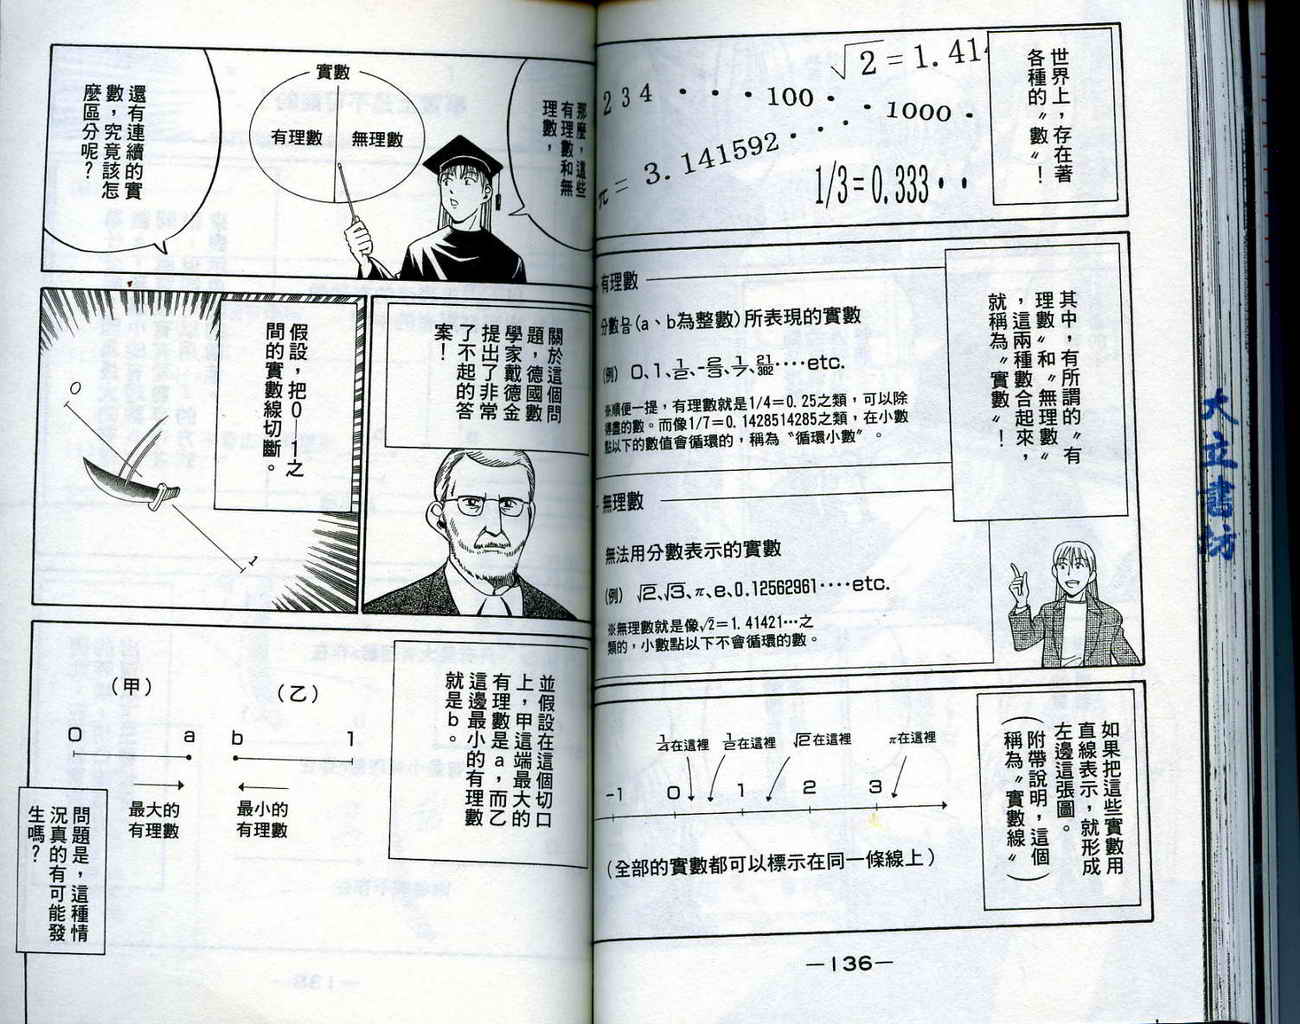 世界上，存在著
各種的〝數〞！
√2=1.414
234・・・100・・1000・
π=3.141592・・・・
1/3=0.333・・
其中，有所謂的〝有
理數〞和〝無理數〞
，這兩種數合起來，
就稱為〝實數〞！
有理數
(a、b為整數)所表現的實數
(例) 0、1、
‥‥etc.
※順便一提，有理數就是1/4=0.25之類，可以除
得盡的數。而像1/7=0.1428514285之類，在小數
點以下的數值會循環的，稱為〝循環小數〞。
無理數
無法用分數表示的實數
(例) √2、√3、π、e、0.12562961‥‥etc.
※無理數就是像√2=1.41421…之
類的，小數點以下不會循環的數。
如果把這些實數用
直線表示，就形成
左邊這張圖。
（附帶說明，這個
稱為〝實數線〞）
1/4在這裡 1/2在這裡 √2在這裡 π在這裡
-1 0 1 2 3
(全部的實數都可以標示在同一條線上)
—136—
那麼，這些
有理數和無
理數，
實數
有理數 無理數
還有連續的實
數，究竟該怎
麼區分呢？
關於這個問
題，德國數
學家戴德金
提出了非常
了不起的答
案！
假設，把0—1之
間的實數線切斷。
0
1
並假設在這個切口
上，甲這端最大的
有理數是a，而乙
這邊最小的有理數
就是b。
（甲） （乙）
0 a b 1
最大的
有理數
最小的
有理數
問題是，這種情
況真的有可能發
生嗎？
大立書坊